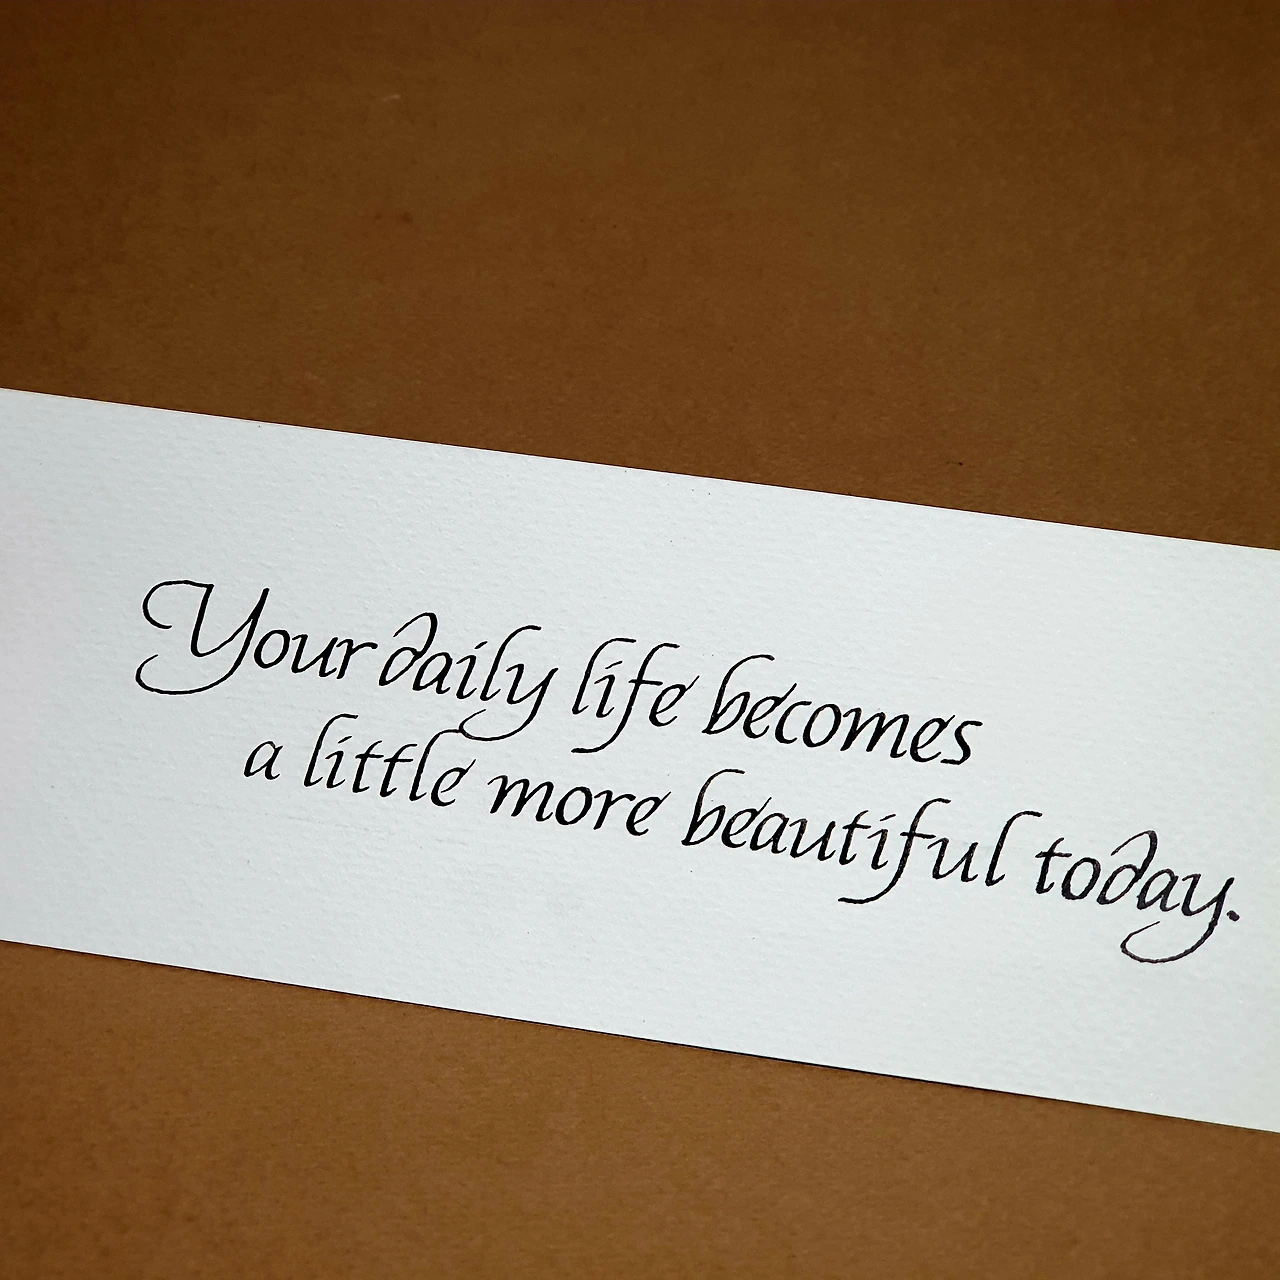 Your daily life becomes
a little more beautiful today.